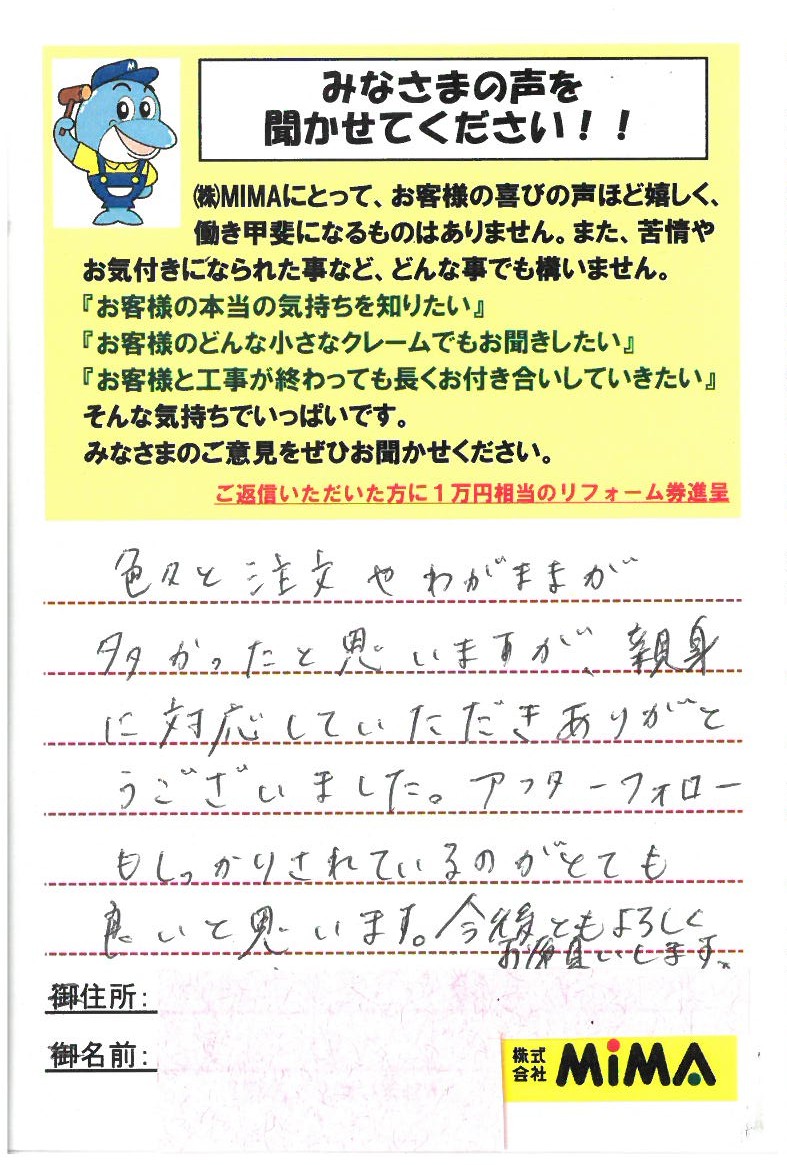 みなさまの声を
聞かせてください！！
㈱MIMAにとって、お客様の喜びの声ほど嬉しく、
働き甲斐になるものはありません。また、苦情や
お気付きになられた事など、どんな事でも構いません。
『お客様の本当の気持ちを知りたい』
『お客様のどんな小さなクレームでもお聞きしたい』
『お客様と工事が終わっても長くお付き合いしていきたい』
そんな気持ちでいっぱいです。
みなさまのご意見をぜひお聞かせください。
ご返信いただいた方に１万円相当のリフォーム券進呈
色々と注文やわがままが
多かったと思いますが、親身
に対応していただきありがと
うございました。アフターフォロー
もしっかりされているのがとても
良いと思います。今後ともよろしく
お願いします。
御住所：
御名前：
株式
会社 MiMA